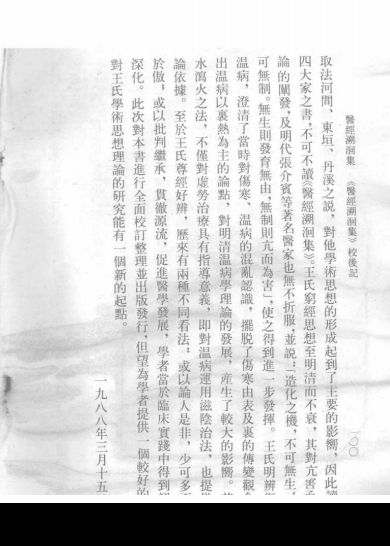 醫經溯洄集 《醫經溯洄集》校後記
一〇〇
取法河間、東垣、丹溪之説，對他學術思想的形成起到了主要的影響，因此讀
四大家之書，不可不讀《醫經溯洄集》。王氏窮經思想至明清而不衰，其對亢害承
論的闡發，及明代張介賓等著名醫家也無不折服，並説：“造化之機，不可無生，
可無制。無生則發育無由，無制則亢而為害”，使之得到進一步發揮。王氏明辨傷
温病，澄清了當時對傷寒、温病的混亂認識，擺脱了傷寒由表及裏的傳變觀念
出温病以裏熱為主的論點，對明清温病學理論的發展，産生了較大的影響。
水瀉火之法，不僅對虚勞治療具有指導意義，即對温病運用滋陰治法，也提
論依據。至於王氏尊經好辨，歷來有兩種不同看法：或以論人是非，少可多
於傲，或以批判繼承，貫徹源流，促進醫學發展，學者當於臨床實踐中得到
深化。此次對本書進行全面校訂整理並出版發行，但望為學者提供一個較好的
對王氏學術思想理論的研究能有一個新的起點。
一九八八年三月十五